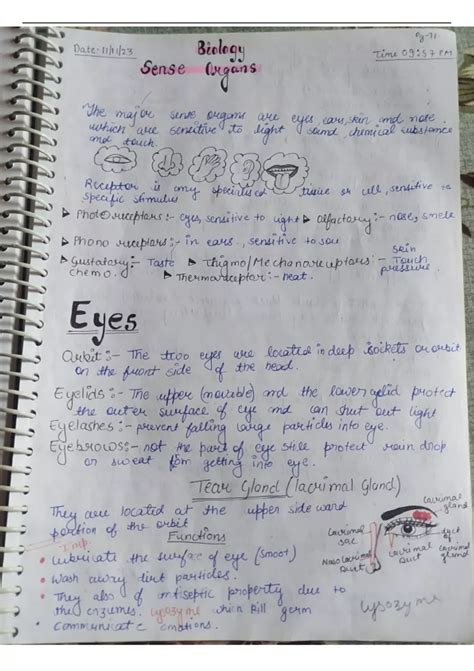 Pg-71
Date-11/11/23
Biology
Time 09:57 PM
Sense Organs
The major sense organs are eyes, ears, skin and nose
which are sensitive to light sound, chemical substance
and touch.
Receptor is any specilised tissue or cell, sensitive to
specific stimulus
Photoreceptors:- eyes, sensitive to light ➤ olfactory:- nose, smele
➤ Phono receptors:- in ears, sensitive to sou
➤ Gustatory:- Taste ➤ Thigmo/Mechanoreceptors:- Skin Touch
chemo. ➤ Thermoreceptor:- heat. pressure.
Eyes
Orbit:- The two eyes are located in deep sockets or orbit
on the front side of the head.
Eyelids:- The upper (movable) and the lower eyelid protect
the outer surface of eye and can shut out light
Eyelashes:- prevent falling large particles into eye.
Eyebrows:- not the part of eye still protect rain drop
or sweat from getting into eye.
Tear Gland (lacrimal Gland)
They are located at the upper side ward
portion of the orbit
Functions
Imp
• lubricate the surface of eye (smoot)
• Wash away dirt particles.
• They also of antiseptic property due to
the enzymes. lysozyme which kill germ
• Communicate emotions.
lacrimal
gland
Lacrimal
sac
Naso lacrimal
Duct
lacrimal
Duct
Duct
of
lacrimal
gland
lysozyme